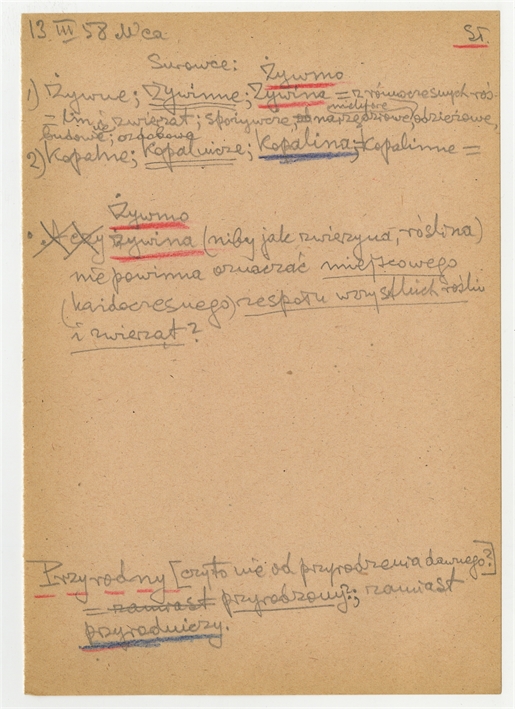 13 III 58 Wca St.
Surowce: Żywmo
1) Żywne; Żywinne; Żywina = z równoczesnych roś-
lin i zwierząt; spożywcze, narzędziowe, odzieżowe,
budowlane; ozdobowe
2) Kopalne; Kopalnicze; Kopalina; Kopalinne =
Żywmo
• A czy żywina (niby jak zwierzyna, roślina)
nie powinna oznaczać miejscowego
(każdoczesnego) zespołu wszystkich roślin
i zwierząt?
Przyrodny [czy to nie od przyrodzenia dawnego?]
= zamiast przyrodzony?; zamiast
przyrodniczy.